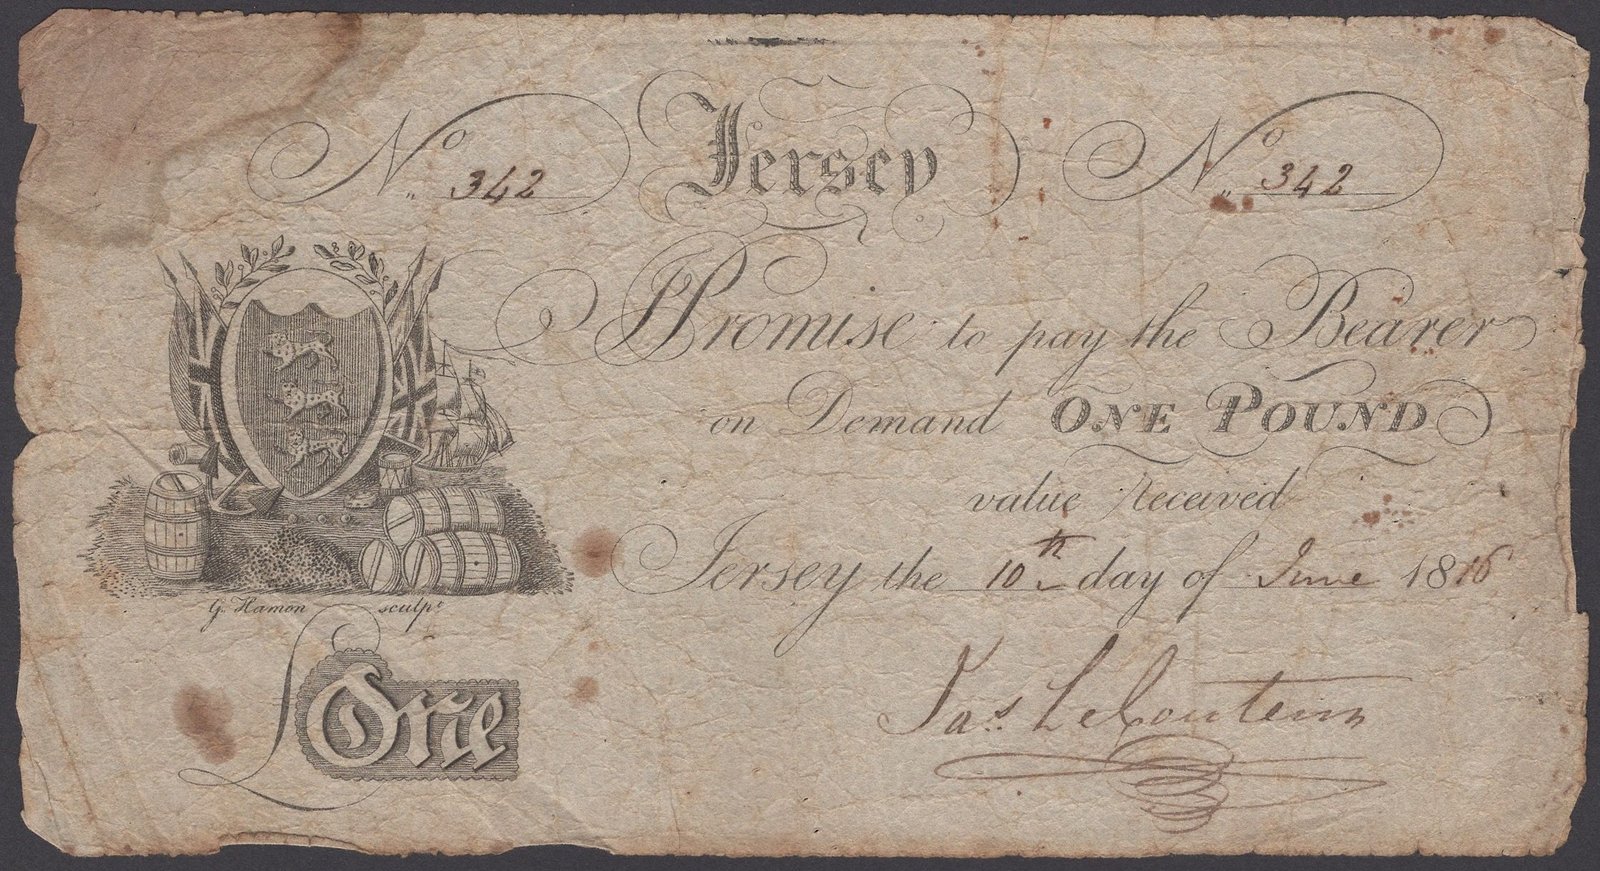 No 342 Jersey No 342
I Promise to pay the Bearer
on Demand ONE POUND
value received
Jersey the 10th day of June 1816
G. Hamon sculpt
£One
Jas. LeCouteur